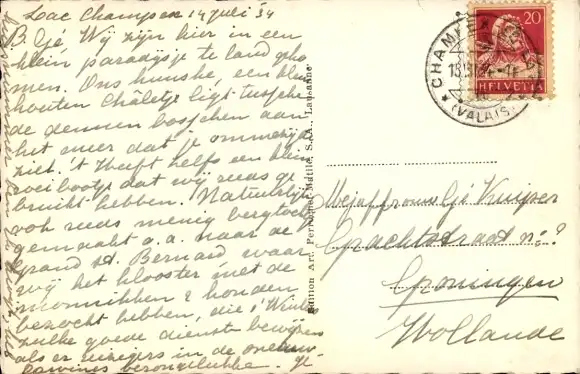 Lac Champex 14 Juli '34
B. Gé, Wij zijn hier in een
klein paradijsje te land geko
men. Ons huuske, een klein
houten Châletje ligt tusschen
de dennen bosschen aan
het meer dat je ommezijds
ziet. 't Heeft zelfs een klein
roeibootje dat wij reeds ge
bruikt hebben. Natuurlijk
ook reeds menig bergtocht
gemaakt o.a. naar de
Grand St. Bernard waar
wij het klooster met de
monnikken & honden
bezocht hebben, die 's Winters
zulke goede diensten bewijzen
als er reizigers in de sneeuw
lawines
Edition Art. Perrochet Matile, S.A., Lausanne
CHAMPEX
(VALAIS)
20
HELVETIA
Mejuffrouw Gé Kuiper
Grachtstraat no. ?
Groningen
Hollande